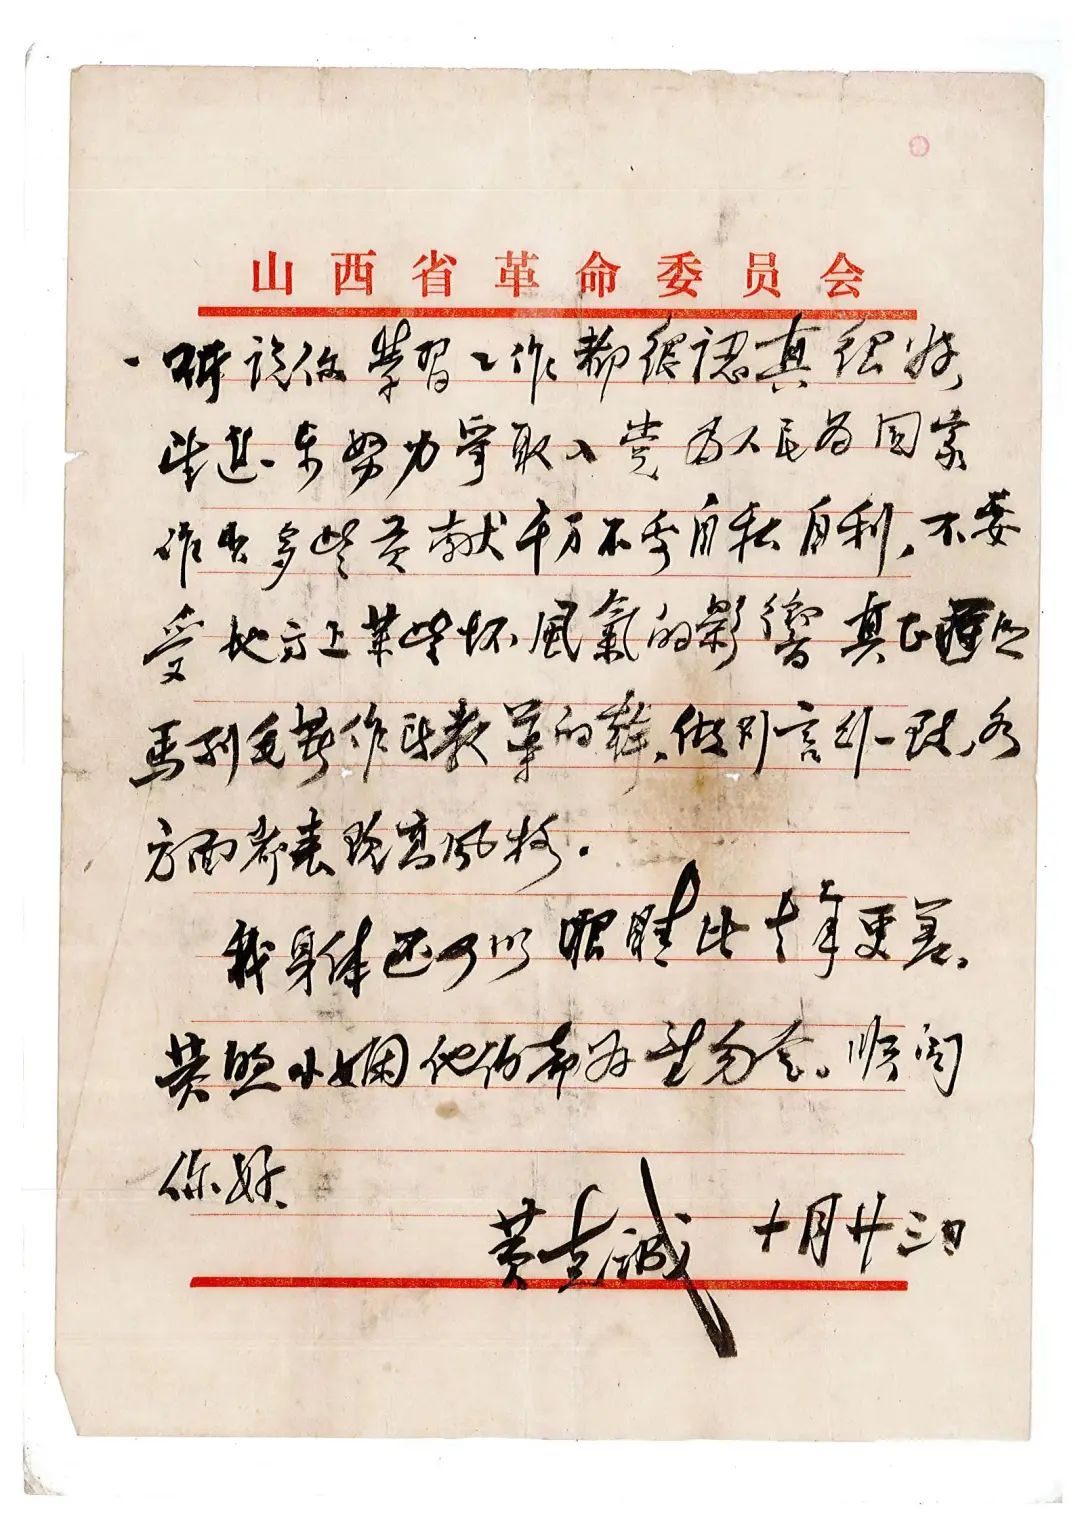 山西省革命委员会
听说你学习工作都很認真很好
望進一步努力争取入党为人民为国家
作出多些贡献千万不要自私自利，不要
受地方上某些坏風氣的影響真正
马列毛著作的，做到言行一致，各
方面都表现高风格．
我身体还可以眼睛比去年更差．
黄煦小娴他们都好望勿念．順问
你好
黄克诚 十月廿三日